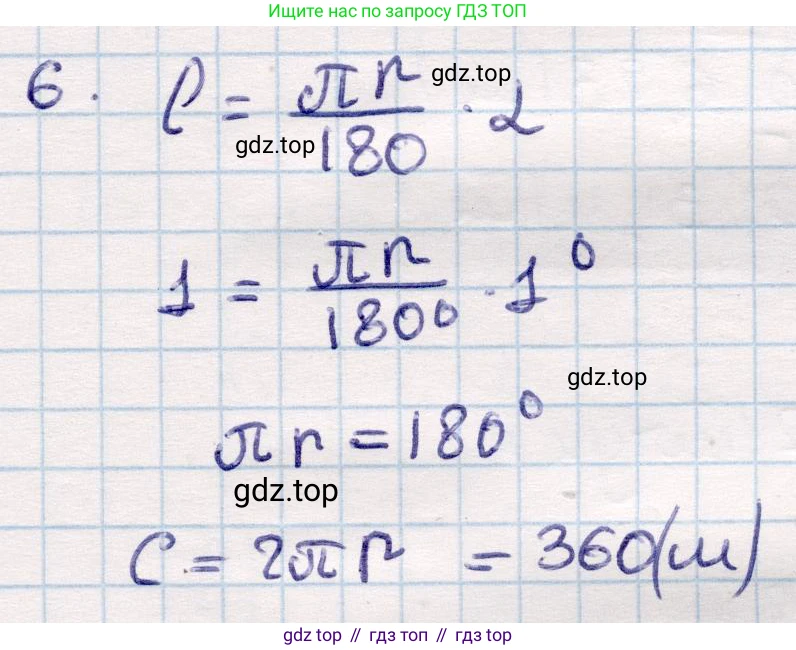 Ищите нас по запросу ГДЗ ТОП
6. l = πr/180 · α
gdz.top
gdz.top
1 = πr/180⁰ · 1⁰
gdz.top
πr = 180⁰
gdz.top
C = 2πr = 360(м)
gdz top // гдз топ // gdz top